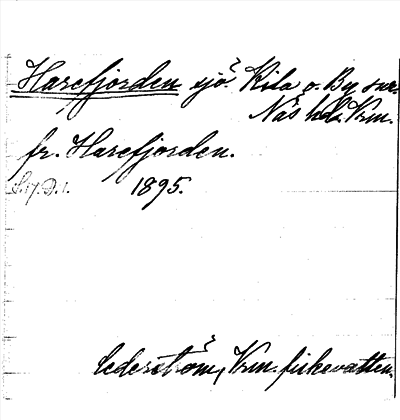 Harefjorden sjö. Kila o. By snr.
Näs hd. Vrm.
fr. Harefjorden.
1895.
Cederström, Vrm. fiskevatten.